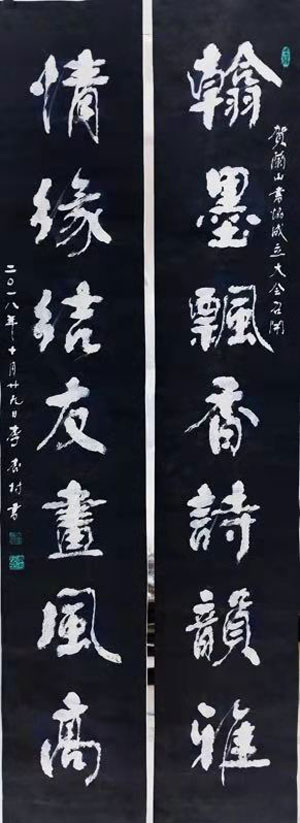 賀蘭山書協成立大会召開
翰墨飄香詩韻雅
情緣結友畫風高
二〇一八年十月廿九日李
村書